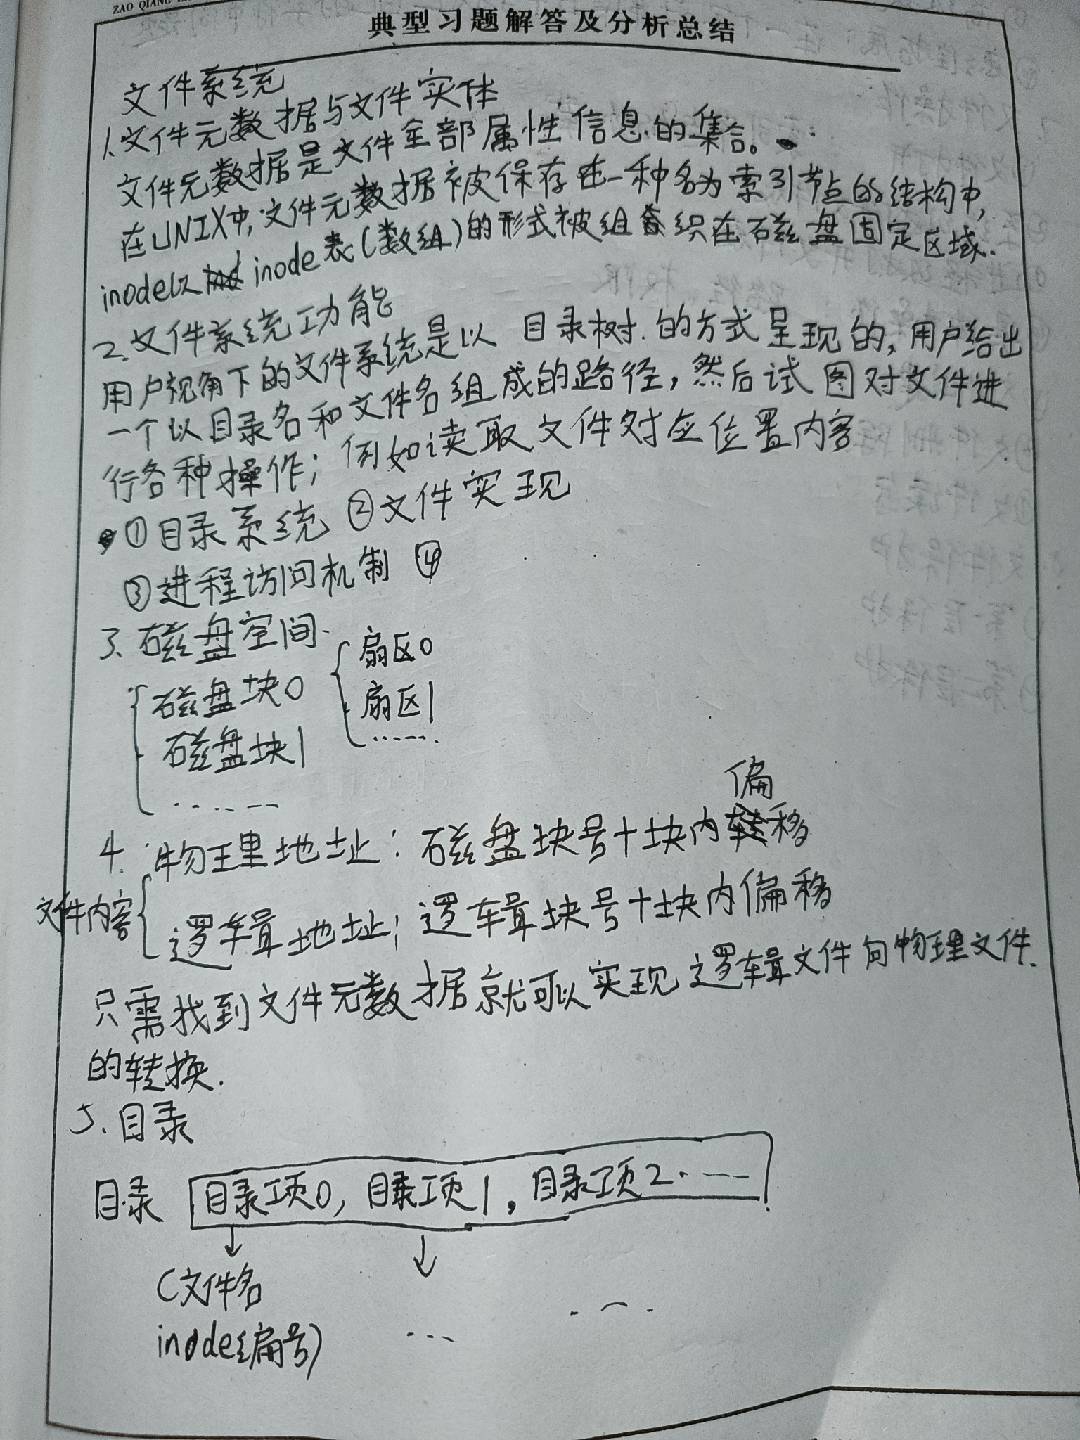 ZAO QIANG
典型习题解答及分析总结
文件系统
1.文件元数据与文件实体
文件元数据是文件全部属性信息的集合。
在UNIX中,文件元数据被保存在一种名为索引节点的结构中,
inode以inode表(数组)的形式被组织在磁盘固定区域.
2.文件系统功能
用户视角下的文件系统是以目录树.的方式呈现的,用户给出
一个以目录名和文件名组成的路径,然后试图对文件进
行各种操作;例如读取文件对应位置内容
①目录系统 ②文件实现
③进程访问机制 ④
3、磁盘空间.
磁盘块0 扇区0
磁盘块1 扇区1
…… ……
4.物理地址:磁盘块号+块内偏移
文件内容
逻辑地址;逻辑块号+块内偏移
只需找到文件元数据就可以实现逻辑文件向物理文件.
的转换.
5.目录
目录 目录项0,目录项1,目录项2……
(文件名
inode编号)
… …